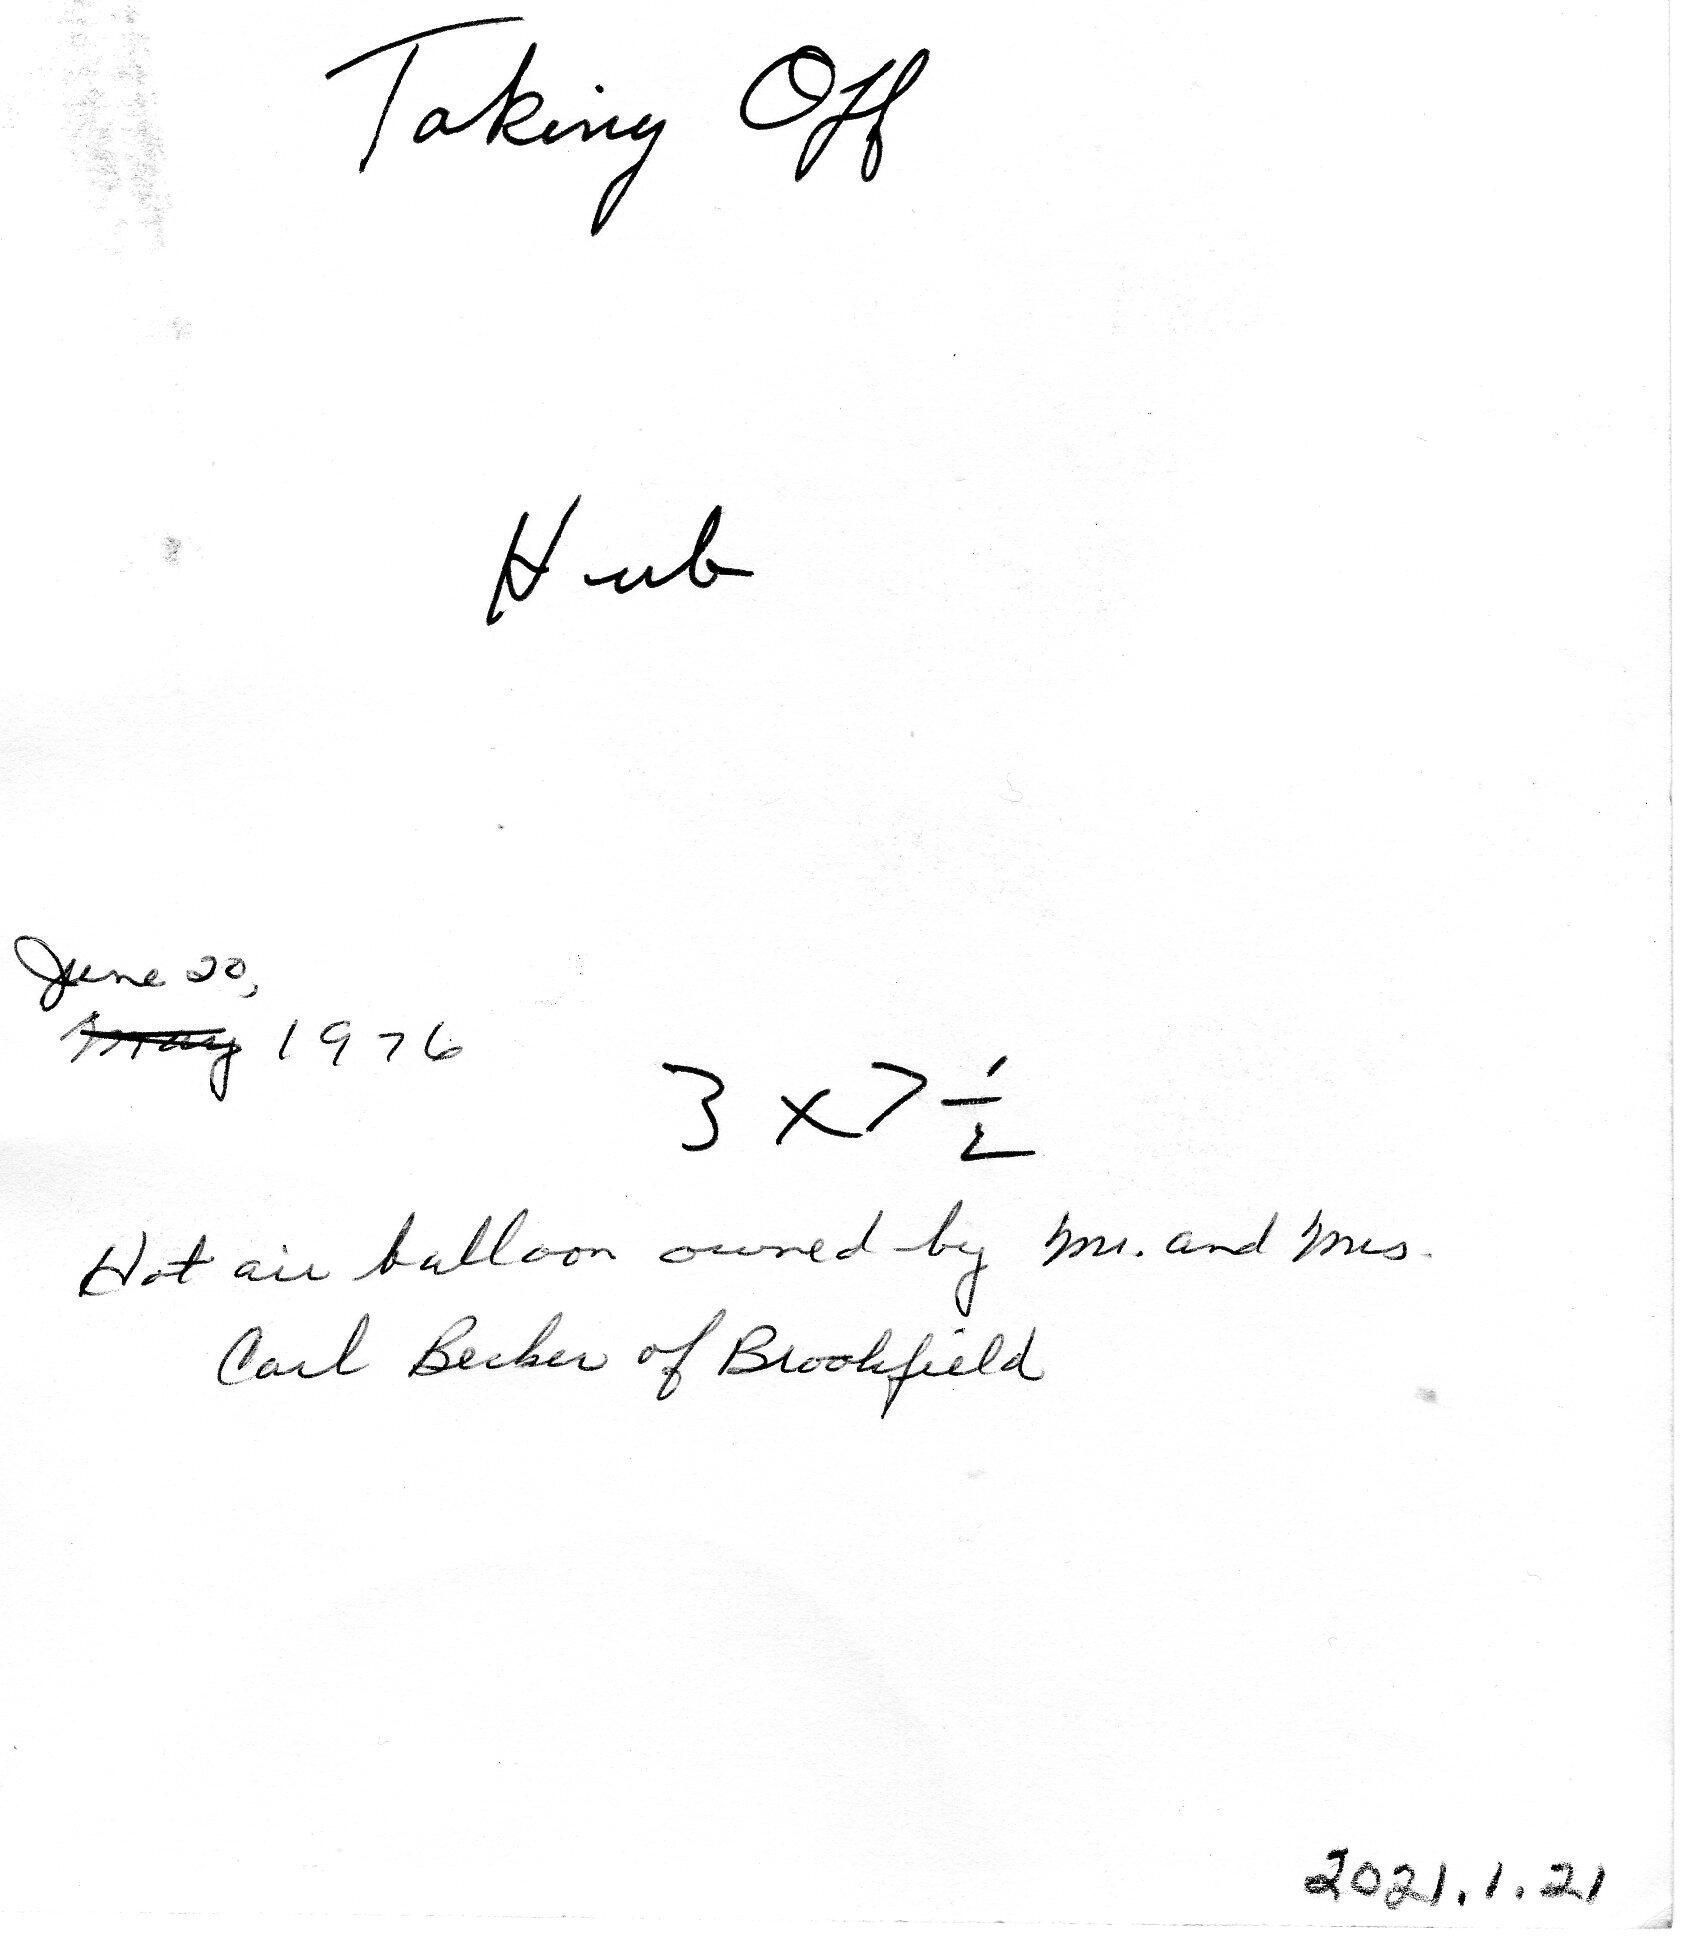 Taking Off
Hub
June 20,
May 1976
3 x 7 1/2
Hot air balloon owned by Mr. and Mrs.
Carl Becker of Brookfield
2021.1.21